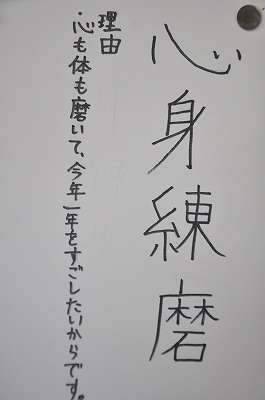 心身練磨
理由
・心も体も磨いて、今年一年をすごしたいからです。